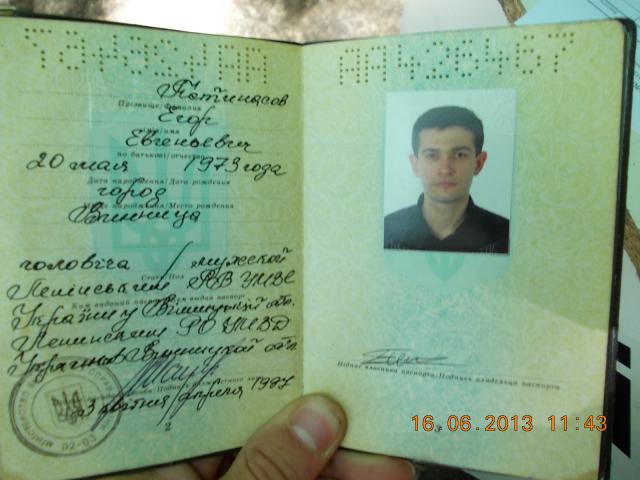 АА426467
Прізвище/Фамилия
Егор
Ім'я/Имя
Евгеньевич
по батькові/отчество
20 мая 1973 года
Дата народження/Дата рождения
город
Місце народження/Место рождения
Винница
чоловіча / мужской
Стать/Пол
Ленінським РВ УМВС
Ким виданий паспорт/Кем выдан паспорт
України у Вінницькій обл.
Ленинским РО УМВД
Украины в Винницкой обл.
3 квітня/апреля 1997
02-03
2
Підпис власника паспорта/Подпись владельца паспорта
16.06.2013 11:43